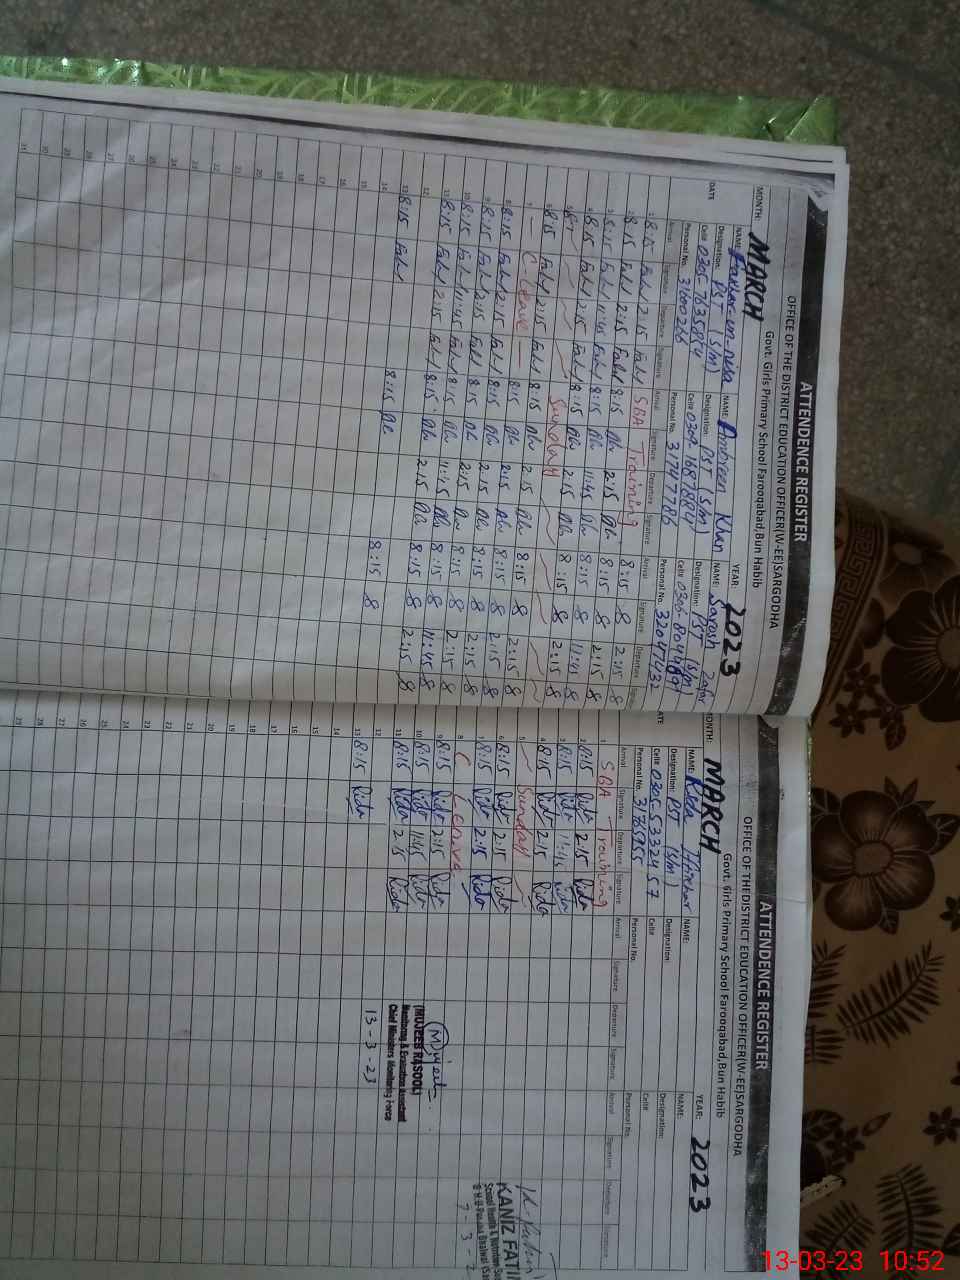 ATTENDENCE REGISTER
OFFICE OF THE DISTRICT EDUCATION OFFICER(W-EE)SARGODHA
Govt. Girls Primary School Farooqabad,Bun Habib
MONTH: MARCH YEAR: 2023
NAME: Fakhar-un-nisa NAME: Ambreen Khan NAME: Saresh Zafar
Designation: PST (S/m) Designation: PST (S/m) Designation: PST (S/m)
Cell# 0305-7635894 Cell# 0309 1687884 Cell#
Personal No. 31600266 Personal No. 31747786 Personal No. 32041432
DATE Arrival Signature Departure Signature Arrival Signature Departure Signature Arrival Signature Departure
1 8:15 2:15 SBA Training 8:15 2:15
2 8:15 2:15 8:15 2:15 8:15 2:15
3 8:15 11:45 8:15 11:45 8:15 11:45
4 8:15 2:15 8:15 2:15 8:15 2:15
5 Sunday
6 8:15 2:15 8:15 2:15 8:15 2:15
7 C-Leave 8:15 2:15 8:15 2:15
8 8:15 2:15 8:15 2:15 8:15 2:15
9 8:15 2:15 8:15 2:15 8:15 2:15
10 8:15 11:45 8:15 11:45 8:15 11:45
11 8:15 2:15 8:15 2:15 8:15 2:15
12
13 8:15 8:15 8:15
14
15
16
17
18
19
20
21
22
23
24
25
26
27
28
29
30
31
ATTENDENCE REGISTER
OFFICE OF THE DISTRICT EDUCATION OFFICER(W-EE)SARGODHA
Govt. Girls Primary School Farooqabad,Bun Habib
MONTH: MARCH YEAR: 2023
NAME: Rida NAME: NAME:
Designation: PST (S/m) Designation: Designation:
Cell# 0305-5332457 Cell# Cell#
Personal No. 31765955 Personal No. Personal No.
Arrival Signature Departure Signature Arrival Signature Departure Signature Arrival Signature Departure Signature
1 SBA Training
2 8:15 Rida 2:15 Rida
3 8:15 Rida 11:45 Rida
4 8:15 Rida 2:15 Rida
5 Sunday
6 8:15 Rida 2:15 Rida
7 8:15 Rida 2:15 Rida
8 C Leave
9 8:15 Rida 2:15 Rida
10 8:15 Rida 11:45 Rida
11 8:15 Rida 2:15 Rida
12
13 8:15 Rida
14
15
16
17
18
19
20
21
22
23
24
25
26
27
28
29
Mujeeb
(MUJEEB RASOOL)
Monitoring & Evaluation Assistant
Chief Ministers Monitoring Force
13-3-23
KANIZ FATI
School Health & Nutrition
7-3-2
13-03-23 10:52